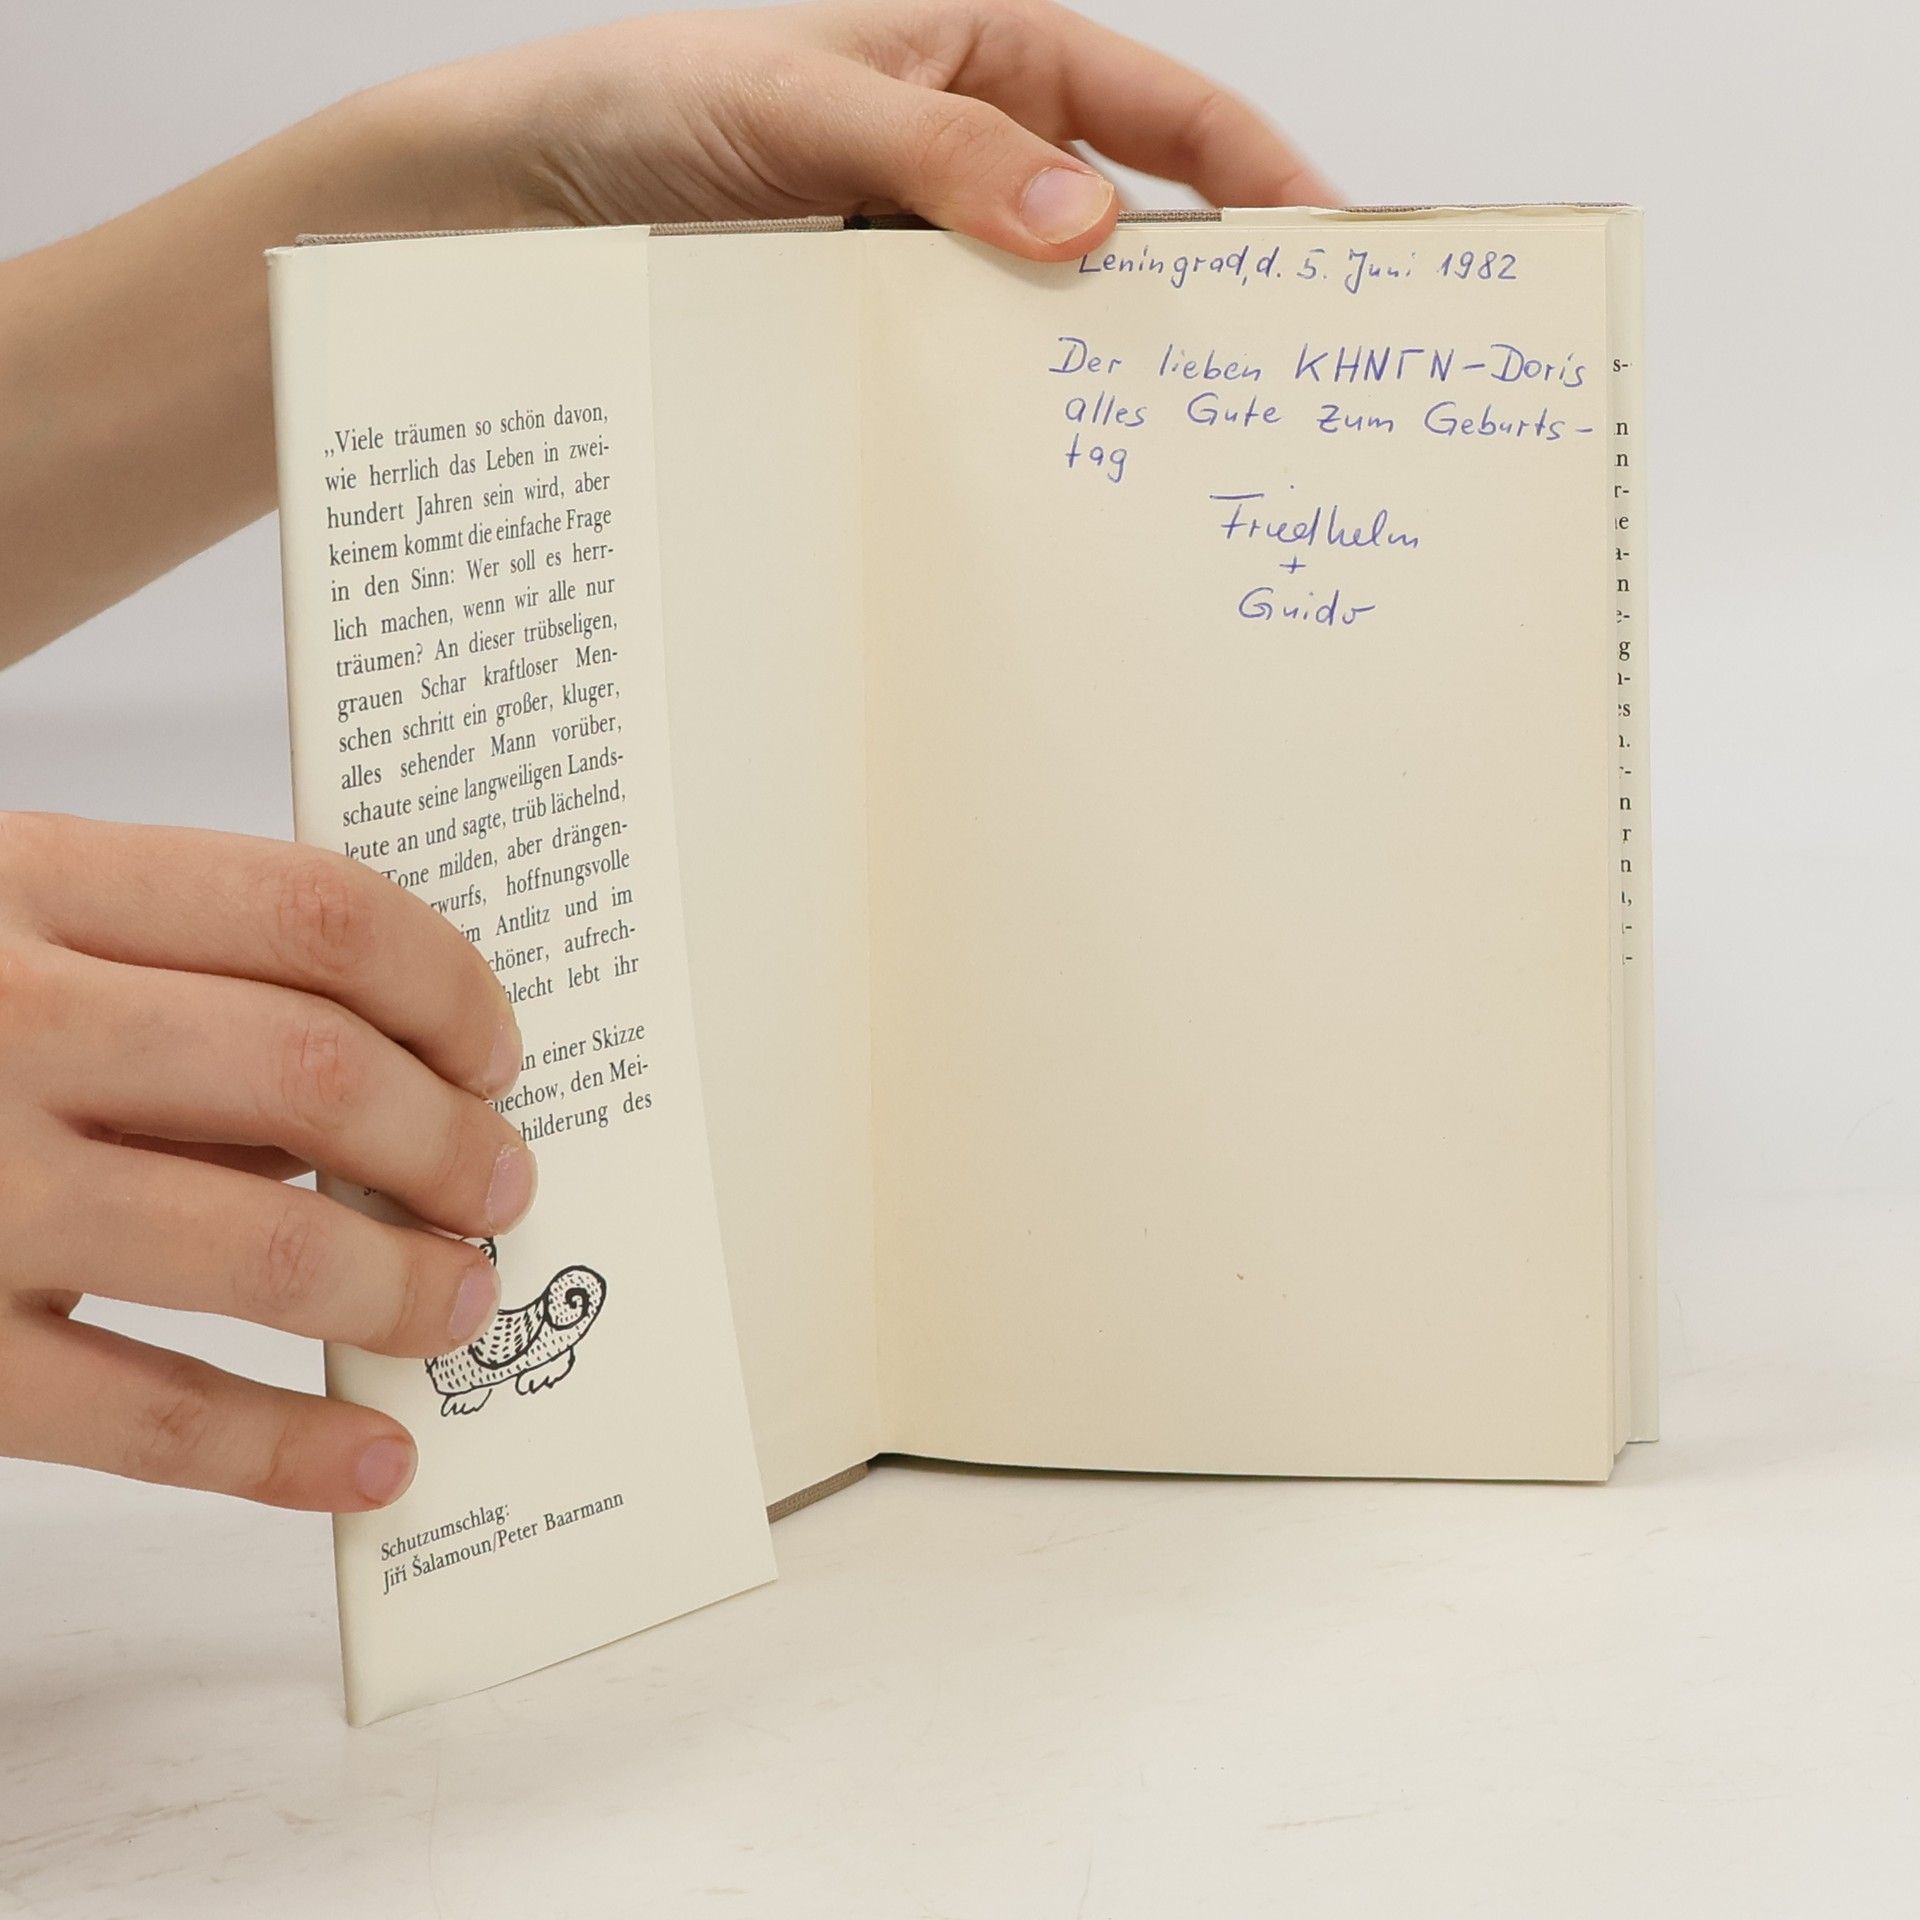 „Viele träumen so schön davon,
wie herrlich das Leben in zwei-
hundert Jahren sein wird, aber
keinem kommt die einfache Frage
in den Sinn: Wer soll es herr-
lich machen, wenn wir alle nur
träumen? An dieser trübseligen,
grauen Schar kraftloser Men-
schen schritt ein großer, kluger,
alles sehender Mann vorüber,
schaute seine langweiligen Lands-
leute an und sagte, trüb lächelnd,
Tone milden, aber drängen-
hoffnungsvolle
im Antlitz und im
aufrech-
lebt ihr
in einer Skizze
den Mei-
des
Schutzumschlag:
Jiří Šalamoun/Peter Baarmann
Leningrad, d. 5. Juni 1982
Der lieben KHNΓN-Doris
alles Gute zum Geburts-
tag
Friedhelm
+
Guido